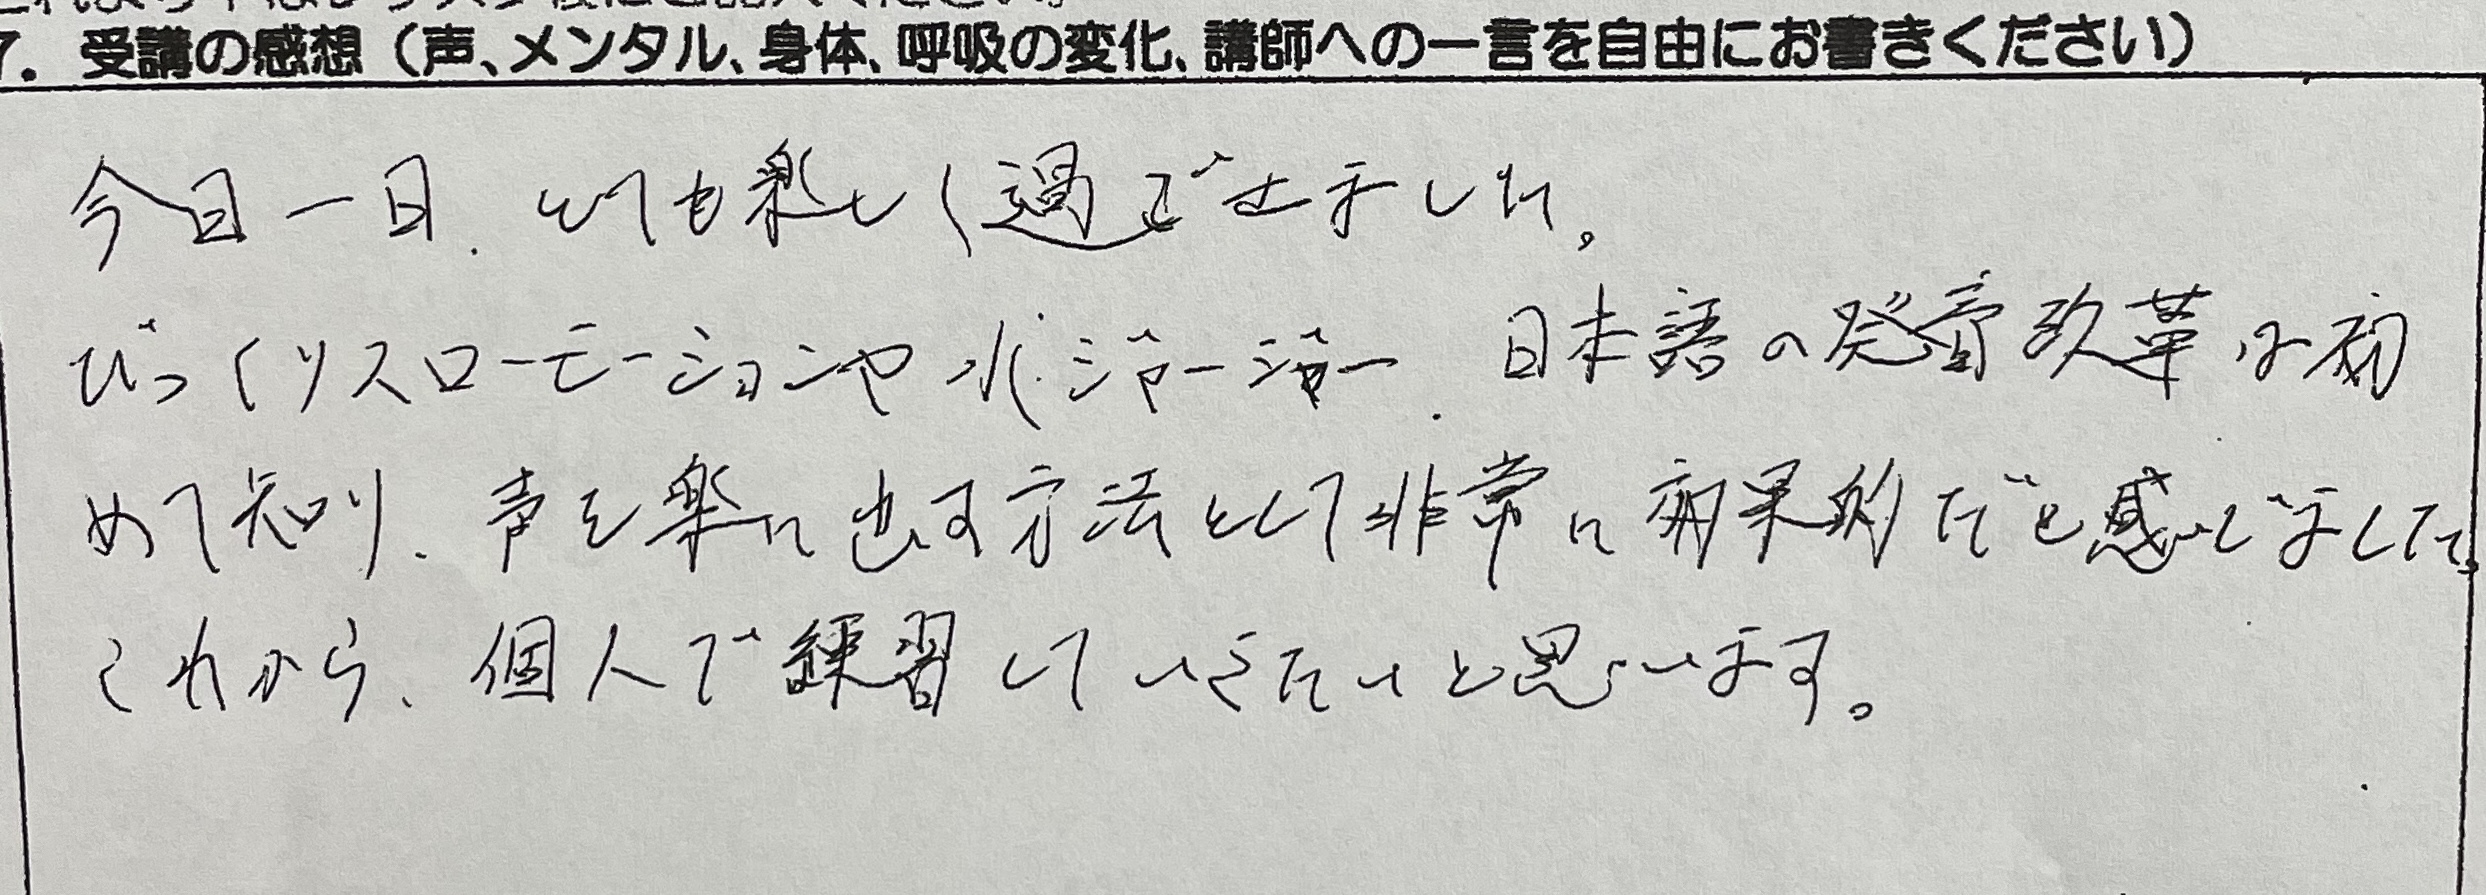 7. 受講の感想（声、メンタル、身体、呼吸の変化、講師への一言を自由にお書きください）
今日一日、とても楽しく過ごせました。
びっくりスローモーションや水ジャージャー、日本語の発音改革は初
めて知り、声を楽に出す方法として非常に効果的だと感じました。
これから、個人で練習していきたいと思います。